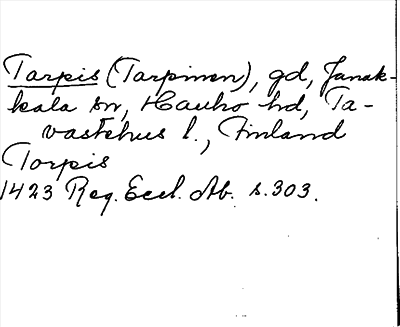 Tarpis (Tarpinen), gd, Janak-
kala sn, Hauho hd, Ta-
vastehus l., Finland
Torpis
1423 Reg. Eccl. Ab. s. 303.